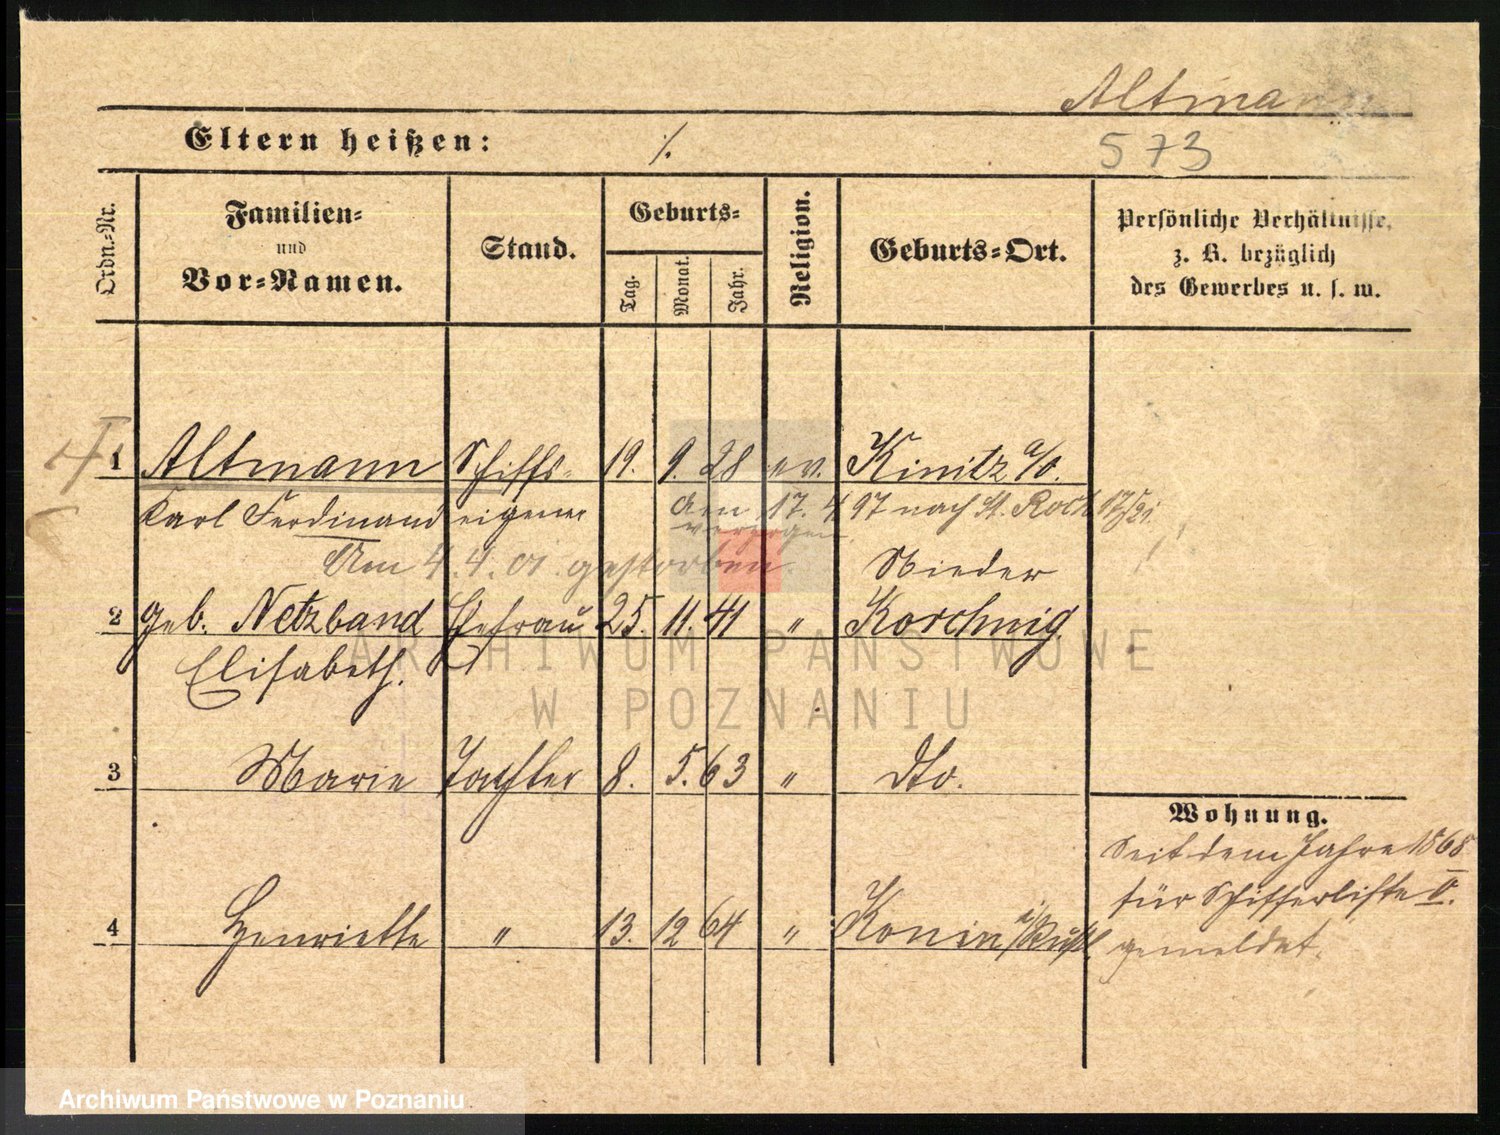 Altmann
Eltern heißen: ./.
573
Ordn.-Nr.
Familien-
und
Vor-Namen.
Stand.
Geburts-
Tag.
Monat.
Jahr.
Religion.
Geburts-Ort.
Persönliche Verhältnisse,
z. B. bezüglich
des Gewerbes u. s. w.
1 Altmann Schiffs- 19. 9. 28 ev. Kinitz a/O.
Karl Ferdinand eigener
Am 17. 4 97 nach St. Roch 17/21.
verzogen
Am 4. 4. 01 gestorben.
Nieder
2 geb. Netzband Ehefrau 25. 11. 41 " Korchnig
Elisabeth.
3 Marie Tochter 8. 5. 63 " dto.
4 Henriette " 13. 12 64 " Konin i/Rußl.
Wohnung.
Seit dem Jahre 1868
für Schifferliste II.
gemeldet.
ARCHIWUM PAŃSTWOWE
W POZNANIU
Archiwum Państwowe w Poznaniu